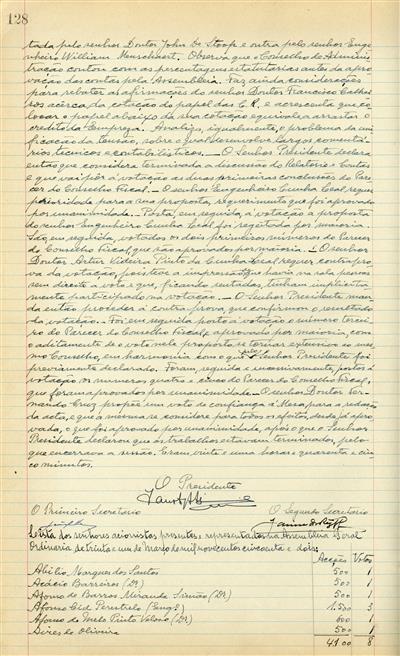 128
tada pelo senhor Doutor John De Stoop e outra pelo senhor Enge-
nheiro William Menschaert. Observa que o Conselho de Adminis-
tração contou com as percentagens estatutárias antes da apro-
vação das contas pela Assembleia. Faz ainda considerações
para rebater as afirmações do senhor Doutor Francisco Calhei-
ros àcêrca da cotação do papel das C.R. e acrescenta que co-
locar o papel abaixo da sua cotação equivale a arrastar o
crédito da Emprêsa. Analisa, igualmente, o problema da uni-
ficação da tensão, sôbre o qual desenvolve largos comentá-
rios técnicos e contabilísticos. — O Senhor Presidente declara
então que considera terminada a discussão do Relatório e Contas
e que vai pôr à votação as duas primeiras conclusões do Pare-
cer do Conselho Fiscal. — O senhor Engenheiro Cunha Leal requer
prioridade para a sua proposta, requerimento que foi aprovado
por unanimidade. — Posta, em seguida, à votação a proposta
do senhor Engenheiro Cunha Leal foi regeitada por maioria. —
São, em seguida, votados os dois primeiros números do Parecer
do Conselho Fiscal, que são aprovados por maioria. — O senhor
Doutor Artur Vieira Pinto da Cunha Leal requer contrapro-
va da votação, pois teve a impressão que havia na sala pessoas
sem direito a voto e que, ficando sentadas, tinham implicita-
mente participado na votação. — O Senhor Presidente man-
da então proceder à contra prova, que confirmou o resultado
da votação. — Foi em seguida posto à votação o número tercei-
ro do Parecer do Conselho Fiscal, e aprovado por maioria, com
o aditamento de o voto nele proposto se tornar extensivo ao mes-
mo Conselho, em harmonia com o que pelo Senhor Presidente foi
previamente declarado. Foram, seguida e sucessivamente, postos à
votação os números quatro e cinco do Parecer do Conselho Fiscal,
que foram aprovados por unanimidade. — O senhor Doutor Fer-
nando Cruz propôs um voto de confiança à Mesa para a redacção
da acta, e que a mesma se considere para todos os efeitos, desde já apro-
vada, o que foi aprovado por unanimidade, após o que o Senhor
Presidente declarou que os trabalhos estavam terminados, pelo
que encerrava a sessão. Eram vinte e uma horas e quarenta e cin-
co minutos.
O Presidente
O Primeiro Secretário
O Segundo Secretário
Lista dos senhores accionistas presentes e representados na Assembleia Geral
Ordinária de trinta e um de Março de mil novecentos cincoenta e dois:
Acções Votos
Abilio Marques dos Santos 500 1
Acácio Barreiros (Dr) 500 1
Afonso de Barros Miranda Simão (Dr) 500 1
Afonso Cid Perestrelo (Engº) 1.500 3
Afonso de Melo Pinto Veloso (Dr) 600 1
Aires de Oliveira 500 1
4100 8